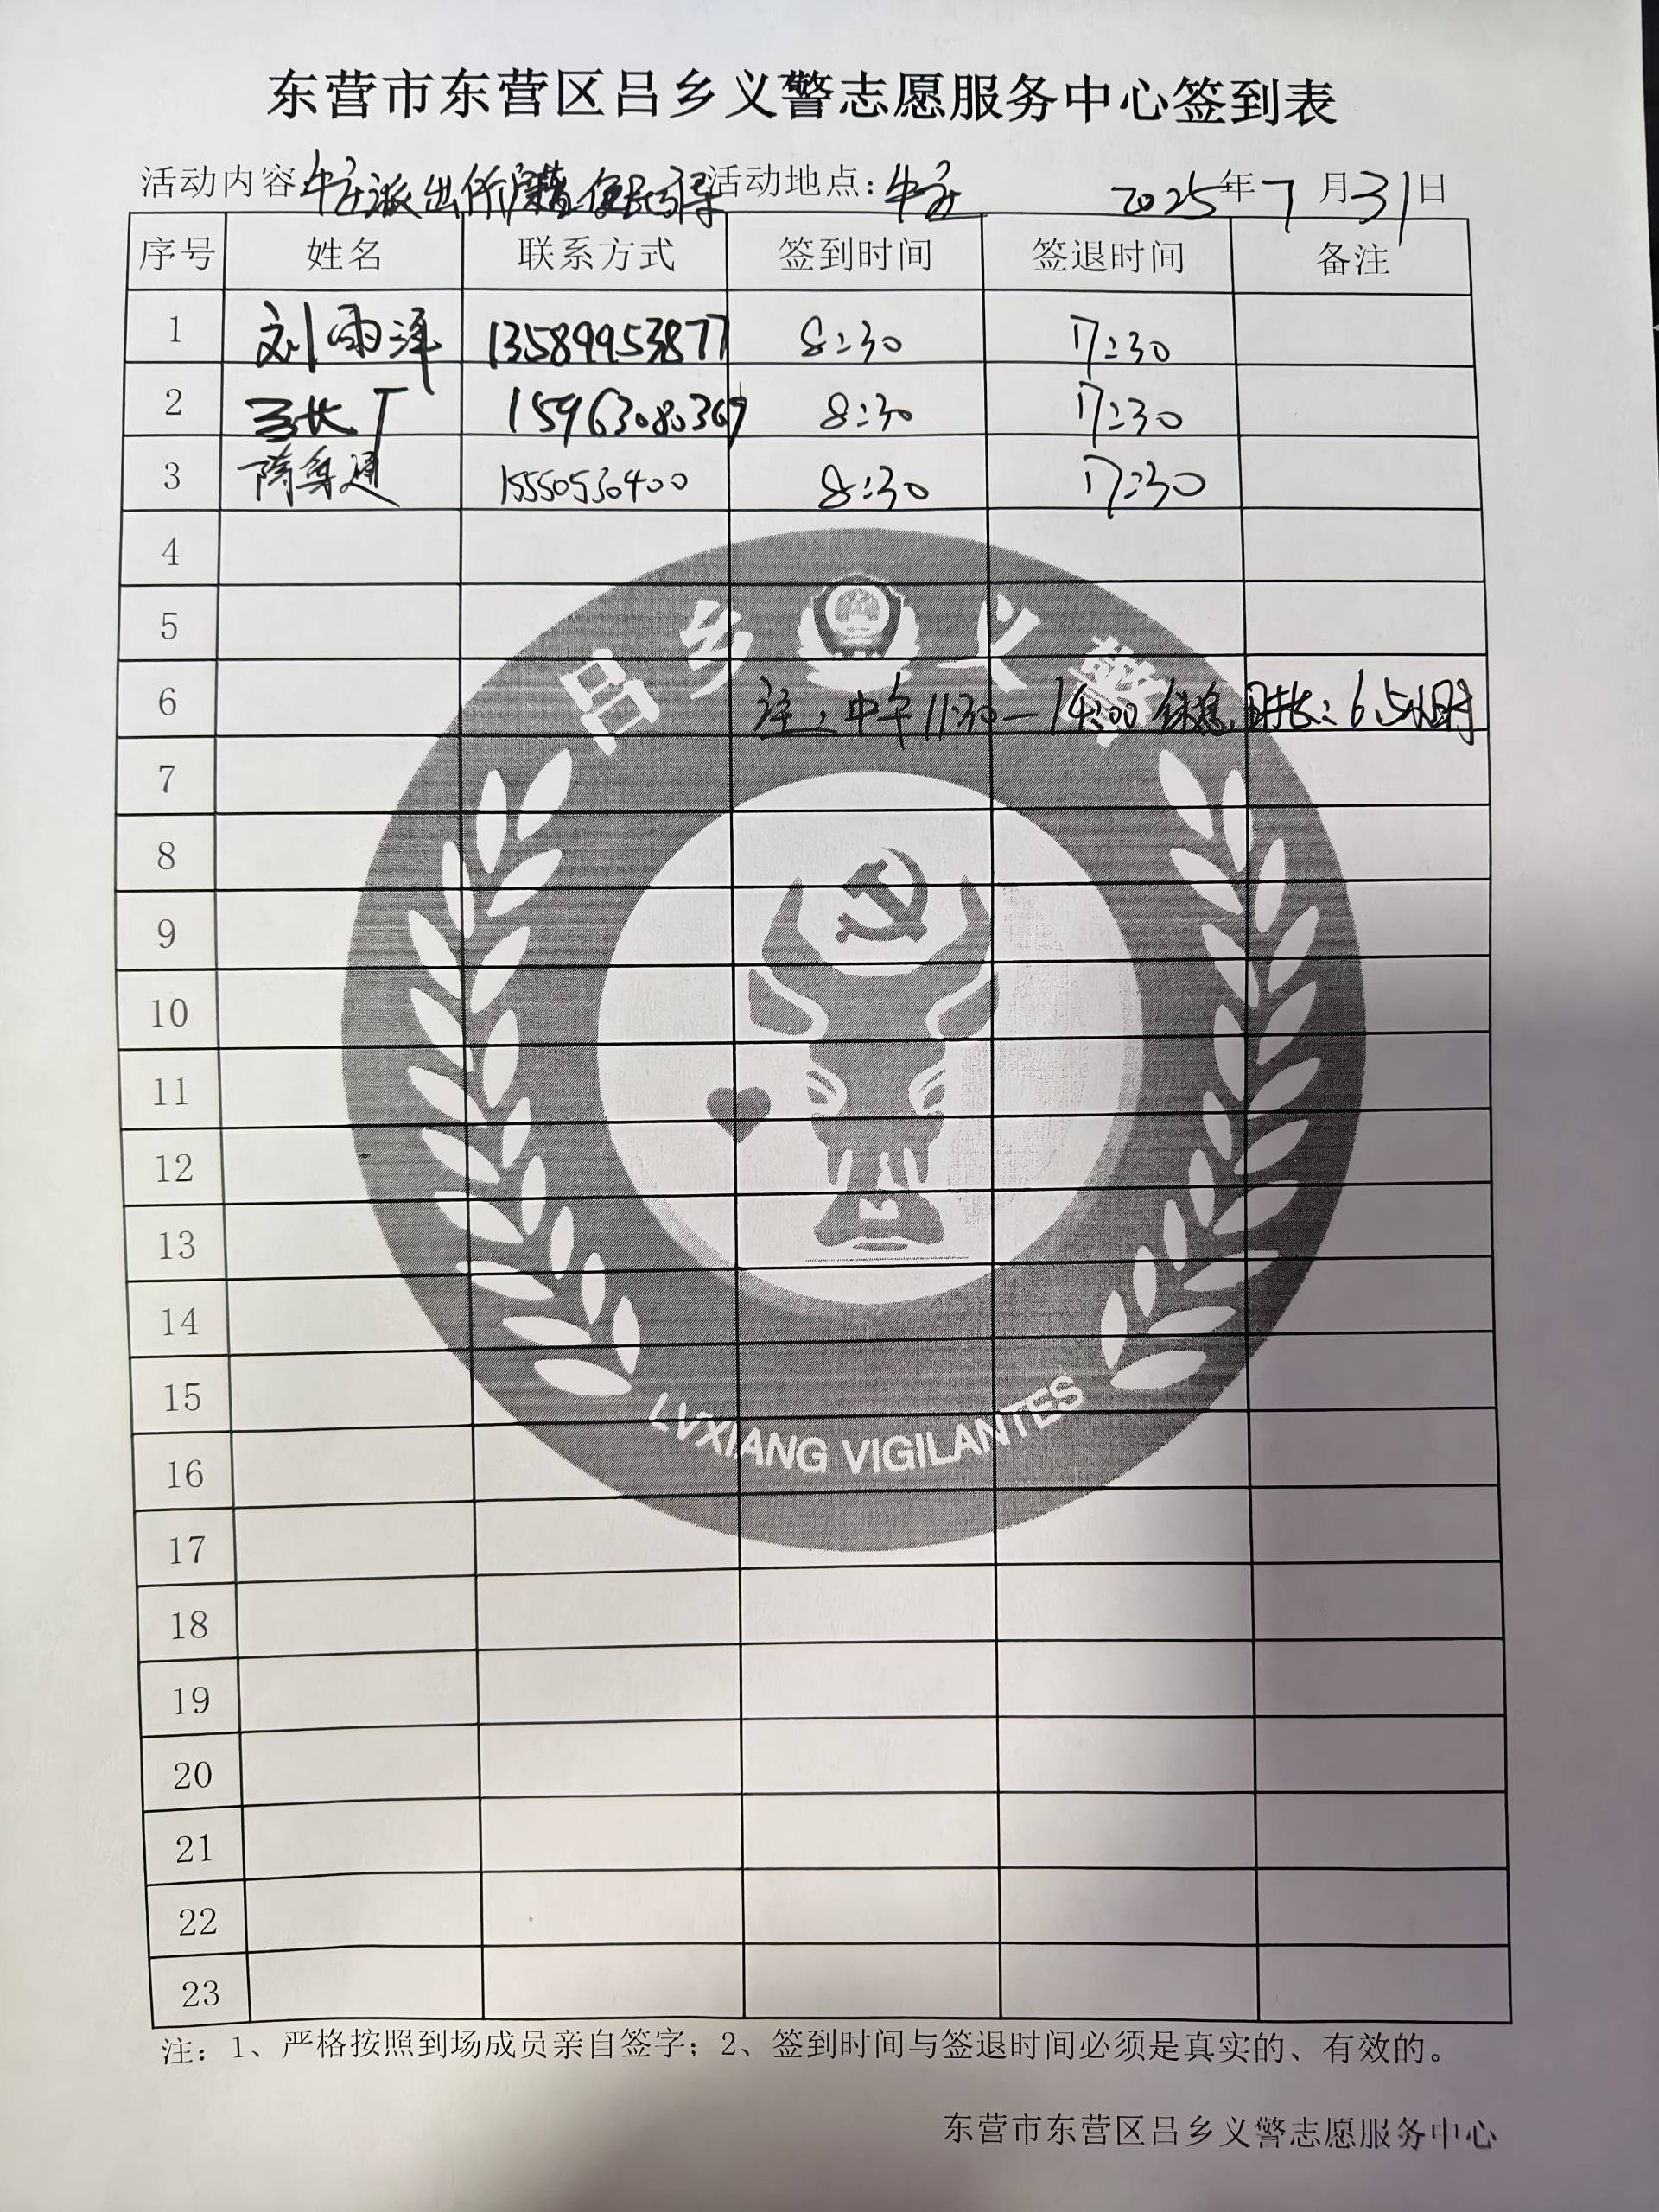 东营市东营区吕乡义警志愿服务中心签到表
活动内容:牛庄派出所户籍便民引导 活动地点:牛庄 2025年7月31日
序号 姓名 联系方式 签到时间 签退时间 备注
1 刘雨泽 13589953877 8:30 17:30
2 长 15963080369 8:30 17:30
3 通 15550530400 8:30 17:30
4
5
吕乡义警
6 注:中午11:30—14:00休息,时长:6.5小时
7
8
9
10
11
12
13
14
15
LVXIANG VIGILANTES
16
17
18
19
20
21
22
23
注:1、严格按照到场成员亲自签字;2、签到时间与签退时间必须是真实的、有效的。
东营市东营区吕乡义警志愿服务中心